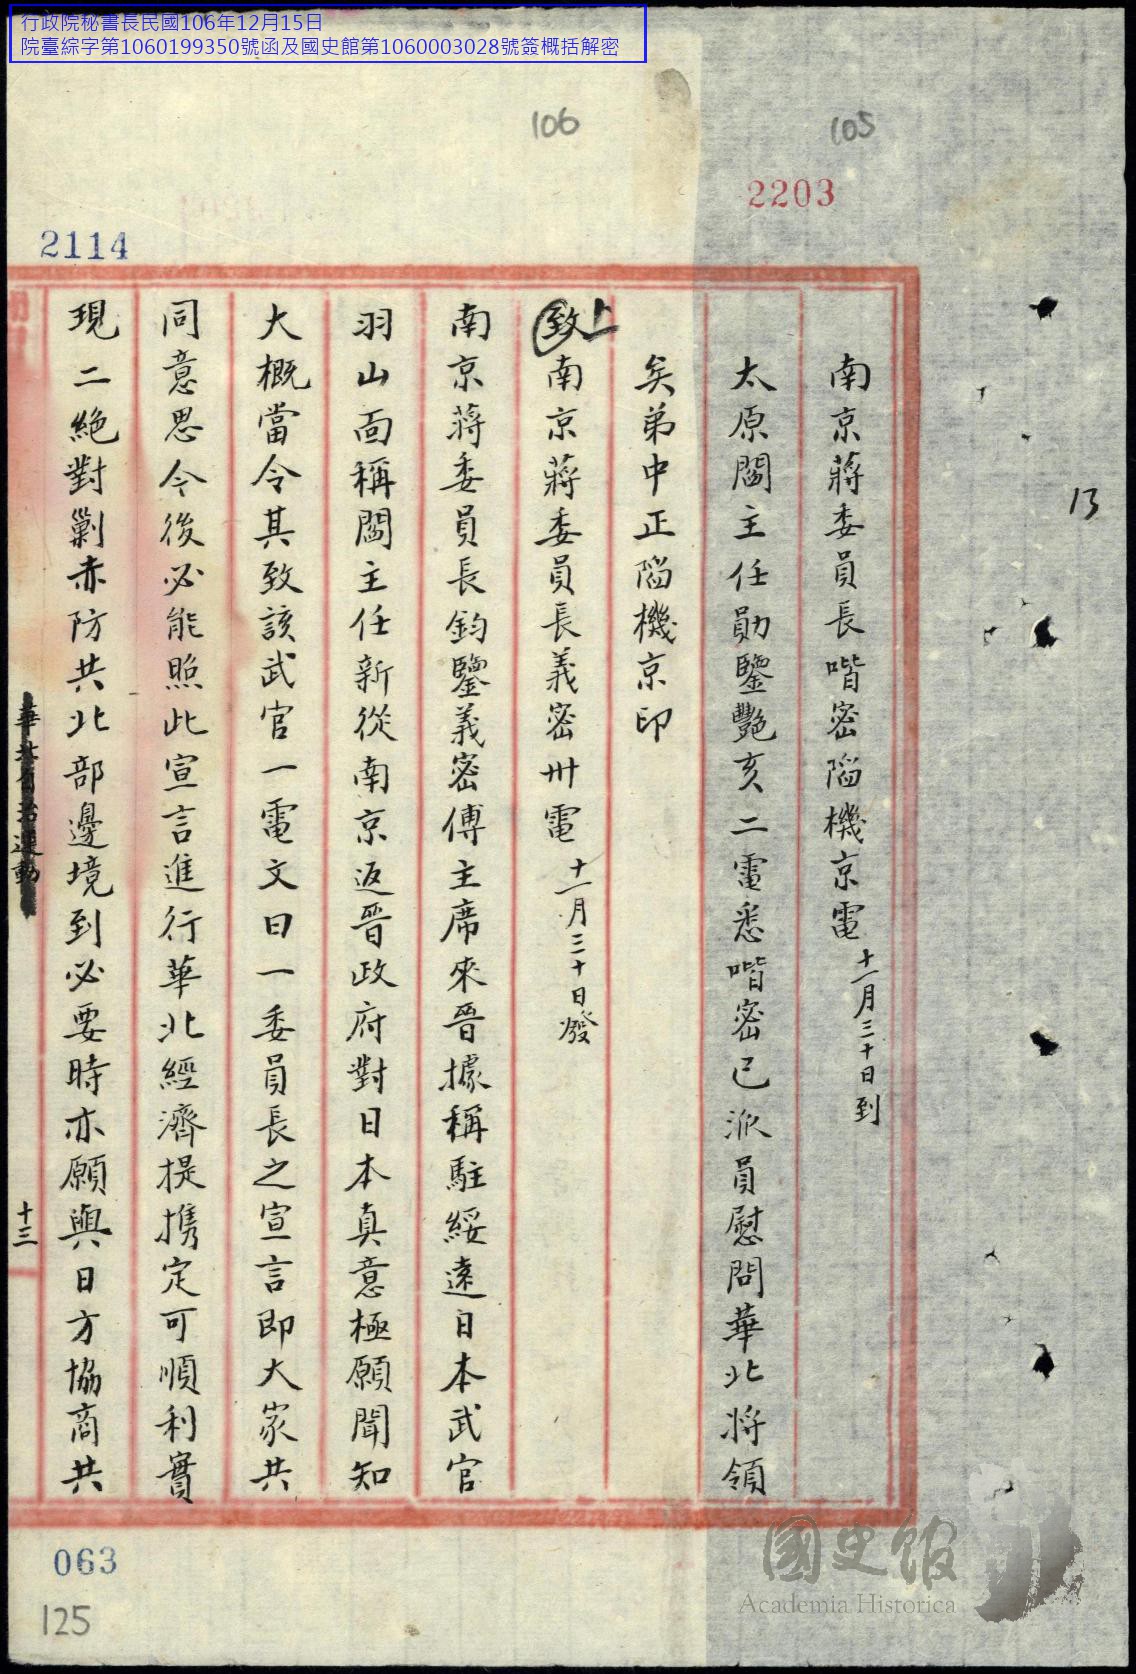 行政院秘書長民國106年12月15日
院臺綜字第1060199350號函及國史館第1060003028號簽概括解密
106
105
2203
2114
13
南京蔣委員長喈密陷機京電十一月三十日到
太原閻主任勛鑒艷亥二電悉喈密已派員慰問華北將領
矣弟中正陷機京印
上
致南京蔣委員長義密卅電十一月三十日發
南京蔣委員長鈞鑒義密傅主席來晉據稱駐綏遠日本武官
羽山面稱閻主任新從南京返晉政府對日本真意極願聞知
大概當令其致該武官一電文曰一委員長之宣言即大家共
同意思今後必能照此宣言進行華北經濟提携定可順利實
現二絶對剿赤防共北部邊境到必要時亦願與日方協商共
自治運動
十三
063
125
國史館
Academia Historica